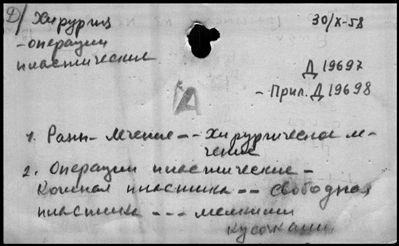 Д/ Хирургия
- операции
пластические
30/X-58
Д 19697
- Прил. Д 19698
А
1. Раны - лечение -- Хирургическое ле-
чение
2. Операции пластические -
Кожная пластика -- свободная
пластика --- мелкими
кусочками